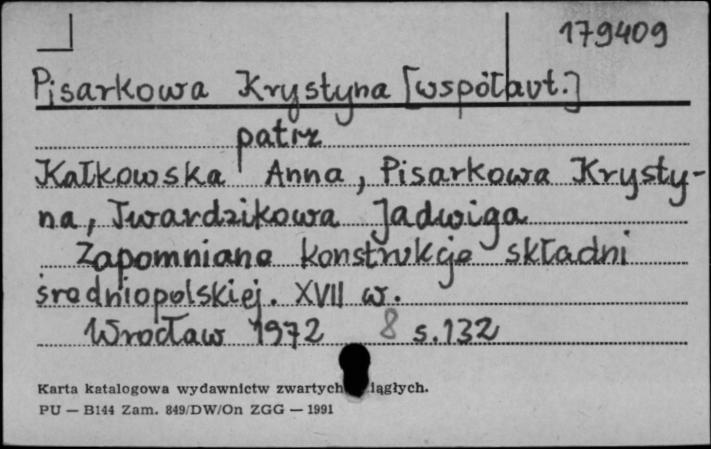 179409
Pisarkowa Krystyna [współaut.]
patrz
Kałkowska Anna, Pisarkowa Krysty-
na, Twardzikowa Jadwiga
Zapomniane konstrukcje składni
średniopolskiej. XVII w.
Wrocław 1972 8 s.132
Karta katalogowa wydawnictw zwartych iągłych.
PU — B144 Zam. 849/DW/On ZGG — 1991